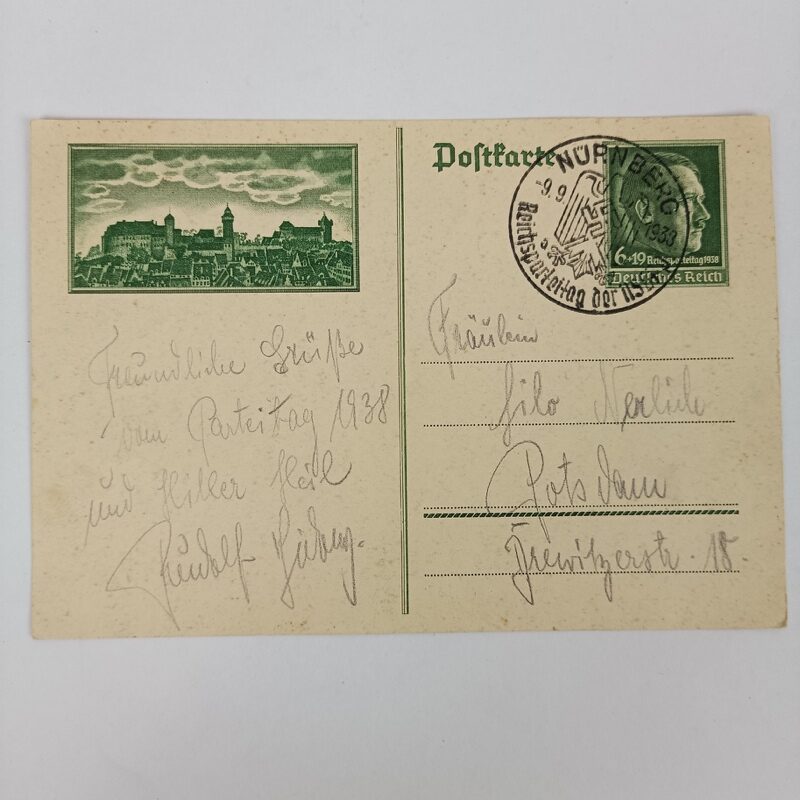 Postkarte
NÜRNBERG
-9.9.1938
Reichsparteitag der NSDAP
6+19 Reichsparteitag 1938
Deutsches Reich
Freundliche Grüße
vom Parteitag 1938
und Hitler Heil
Rudolf
Fräulein
Lilo Nerlich
Potsdam
Drewitzerstr. 15.